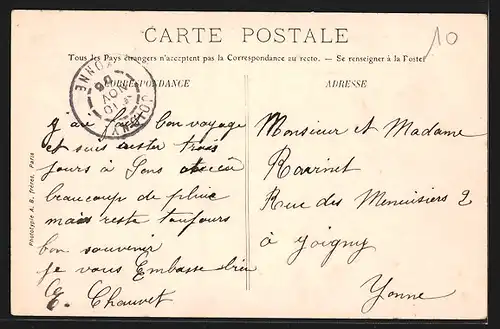 CARTE POSTALE
10
Tous les Pays étrangers n'acceptent pas la Correspondance au recto. — Se renseigner à la Poste
CORRESPONDANCE
ADRESSE
JOIGNY
YONNE
10
NOV
06
j'ai fait bon voyage
et suis rester trois
jours à Sens
beaucoup de pluie
mais reste toujours
bon souvenir
je vous Embasse bien
E. Chauvet
Monsieur et Madame
Ravinet
Rue des Menuisiers 2
à Joigny
Yonne
Phototypie A. B. frères, Paris